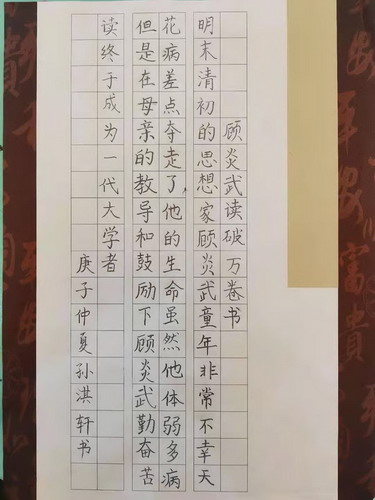 顾炎武读破万卷书
明末清初的思想家顾炎武童年非常不幸天
花病差点夺走了,他的生命虽然他体弱多病
但是在母亲的教导和鼓励下顾炎武勤奋苦
读终于成为一代大学者
庚子仲夏孙淇轩书